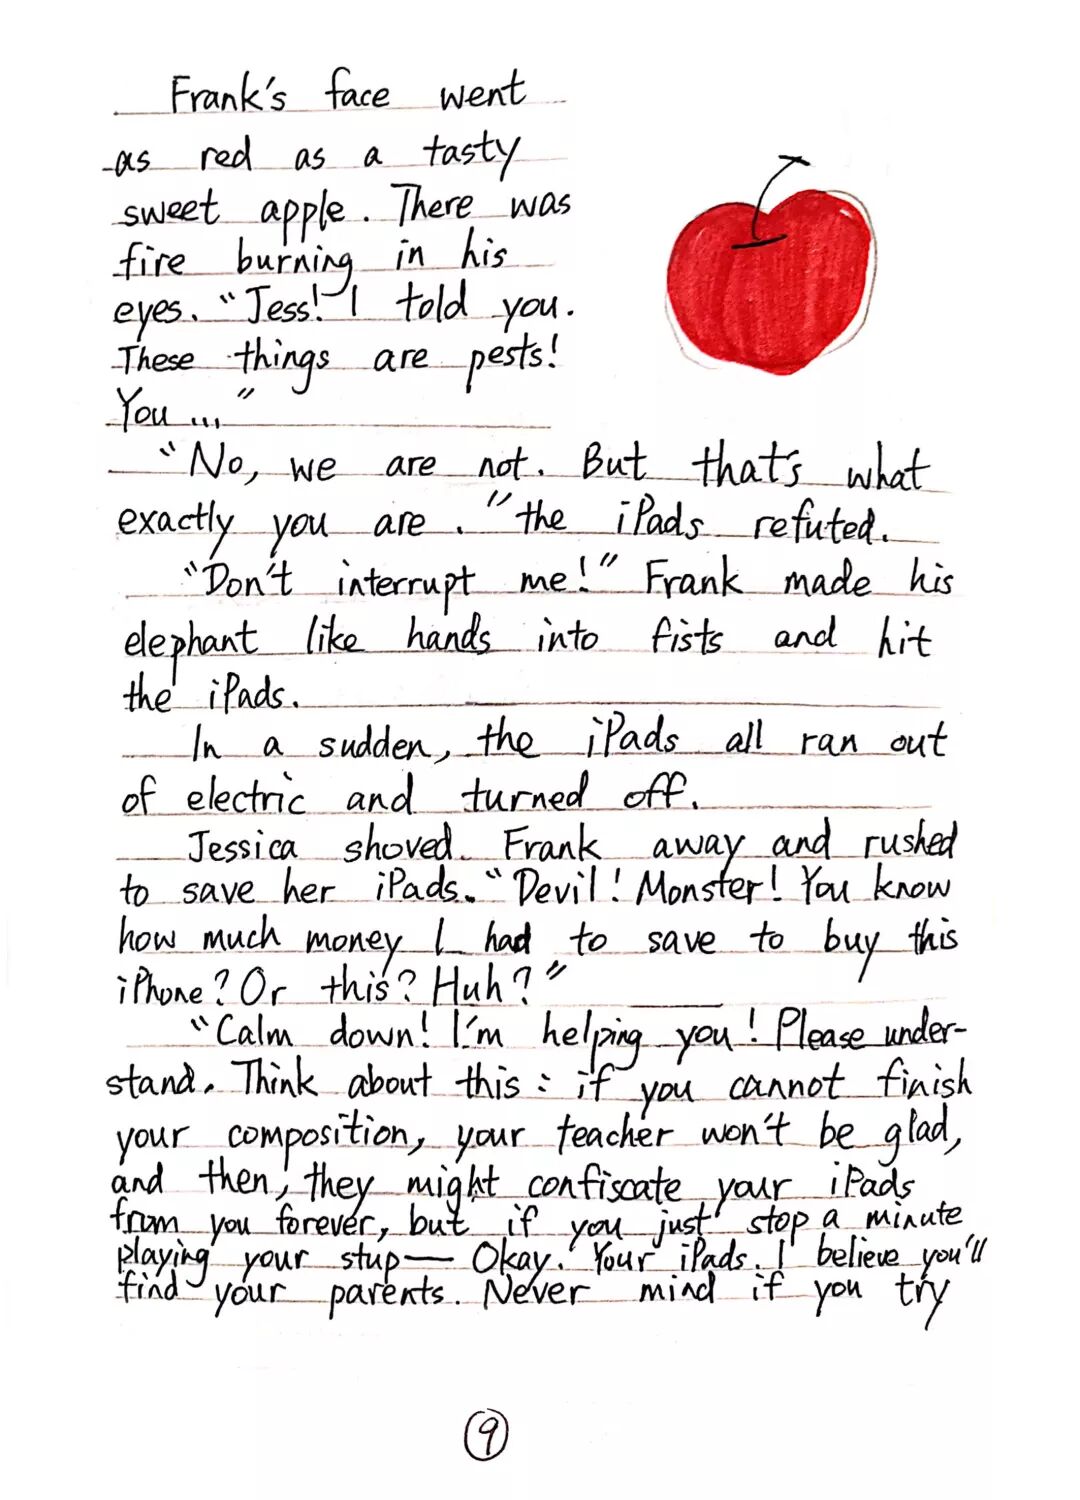 Frank's face went
as red as a tasty
sweet apple. There was
fire burning in his
eyes. "Jess! I told you.
These things are pests!
You ..."
"No, we are not. But that's what
exactly you are. "the iPads refuted.
"Don't interrupt me!" Frank made his
elephant like hands into fists and hit
the iPads.
In a sudden, the iPads all ran out
of electric and turned off.
Jessica shoved Frank away and rushed
to save her iPads. "Devil! Monster! You know
how much money I had to save to buy this
iPhone? Or this? Huh?"
"Calm down! I'm helping you! Please under-
stand. Think about this: if you cannot finish
your composition, your teacher won't be glad,
and then, they might confiscate your iPads
from you forever, but if you just stop a minute
playing your stup— Okay. Your iPads. I believe you'll
find your parents. Never mind if you try
9